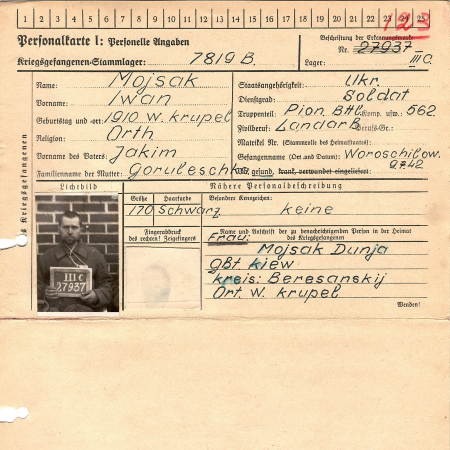 1 2 3 4 5 6 7 8 9 10 11 12 13 14 15 16 17 18 19 20 21 22 23 24 25
123
Personalkarte I: Personelle Angaben
Kriegsgefangenen-Stammlager: 7819 B.
Beschriftung der Erkennungsmarke
Nr. 27937
Lager: III C.
Name: Mojsak
Vorname: Iwan
Geburtstag und -ort: 1910 W. Krupel
Religion: Orth
Vorname des Vaters: Jakim
Familienname der Mutter: Goruleschko
Staatsangehörigkeit: Ukr.
Dienstgrad: Soldat
Truppenteil: Pion. Btl. Komp. usw.: 562
Zivilberuf: Landarb Berufs-Gr.:
Matrikel Nr. (Stammrolle des Heimatstaates):
Gefangennahme (Ort und Datum): Woroschilow.
Ob gesund, krank, verwundet eingeliefert:
des Kriegsgefangenen
Lichtbild
III C
27937
Nähere Personalbeschreibung
Größe Haarfarbe Besondere Kennzeichen:
170 Schwarz keine
Fingerabdruck
des rechten! Zeigefingers
Name und Anschrift der zu benachrichtigenden Person in der Heimat
des Kriegsgefangenen
Frau:
Mojsak Dunja
Gbt Kiew
Kreis: Beresanskij
Ort. W. Krupel
Wenden!